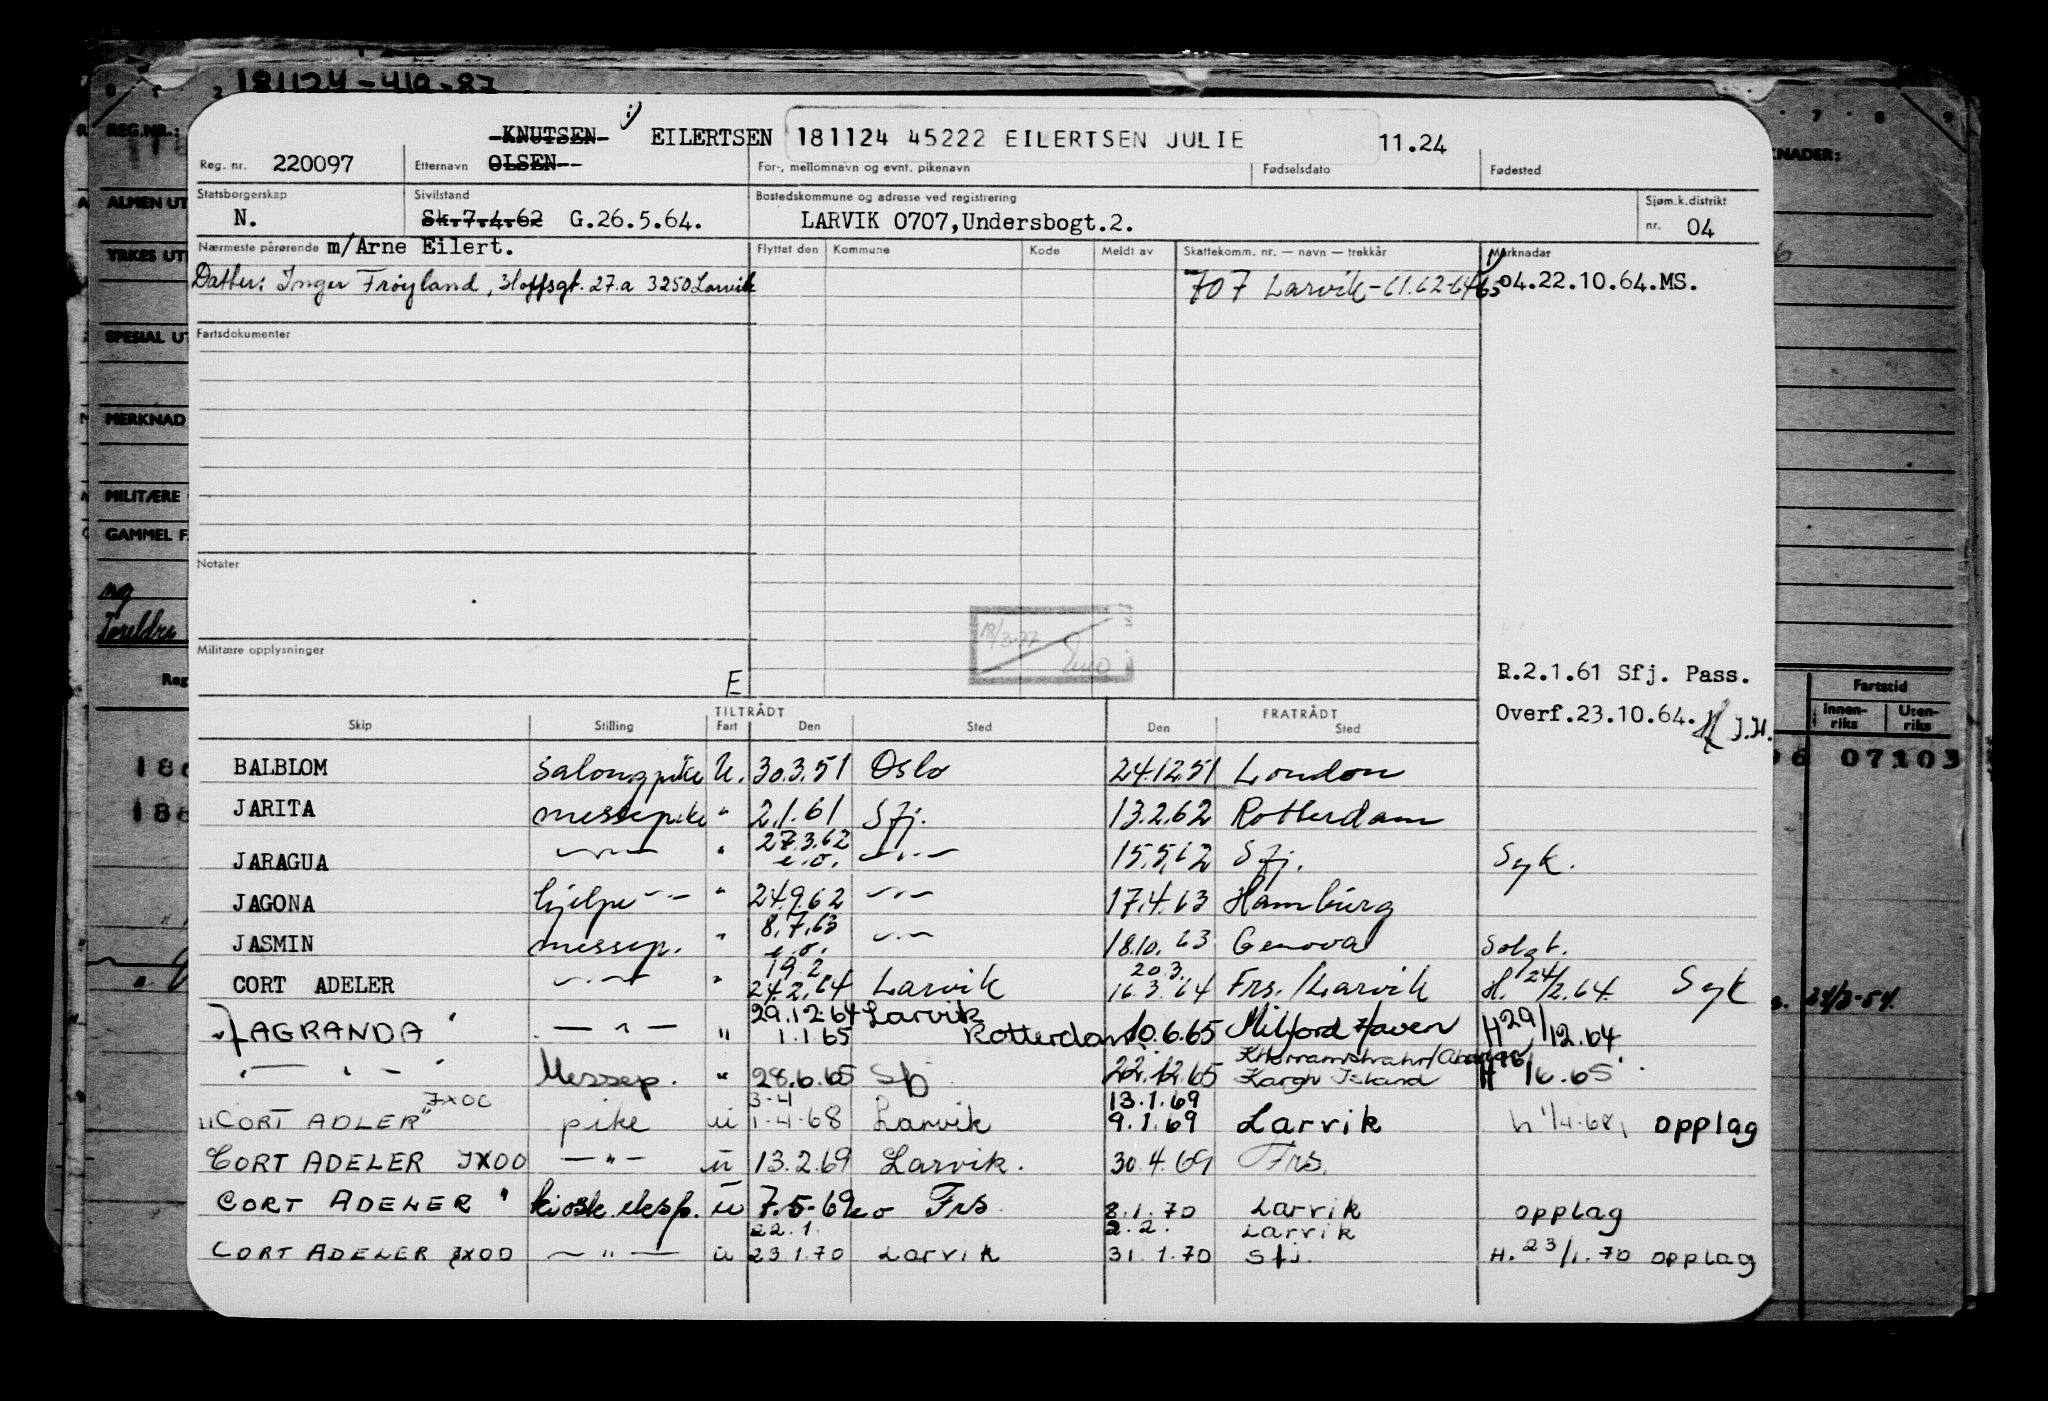 181124-419-87
KNUTSEN 1) EILERTSEN 181124 45222 EILERTSEN JULIE 11.24
Reg. nr. 220097 Etternavn OLSEN For-, mellomnavn og evnt. pikenavn Fødselsdato Fødested
Statsborgerskap Sivilstand Bostedskommune og adresse ved registrering Sjøm.k.distrikt
N. Sk.7.4.62 G.26.5.64. LARVIK 0707,Undersbogt.2. nr. 04
Nærmeste pårørende m/Arne Eilert. Flyttet den Kommune Kode Meldt av Skattekomm. nr. — navn — trekkår Merknader
Datter: Inger Frøyland, Hoffsgt. 27.a 3250 Larvik 707 Larvik-61.62-64 65 1) 04.22.10.64.MS.
Fartsdokumenter
Notater
Militære opplysninger
E
R.2.1.61 Sfj. Pass.
Overf.23.10.64. J.H.
TILTRÅDT FRATRÅDT
Skip Stilling Fart Den Sted Den Sted
BALBLOM Salongpike U. 30.3.51 Oslo 24.12.51 London
JARITA messepike " 2.1.61 Sfj. 13.2.62 Rotterdam
27.3.62
JARAGUA —"— " e.o. —"— 15.5.62 Sfj. Syk.
JAGONA hjelpe -"- " 24.9.62 —"— 17.4.63 Hamburg
8.7.63
JASMIN messep. " e.o. —"— 18.10.63 Genova Solgt.
19.2. 20.3.
CORT ADELER —"— " 24.2.64 Larvik 16.3.64 Frs./Larvik H. 24/2.64. Syk
29.12.64 Larvik
JAGRANDA — " — " 1.1.65 Rotterdam 10.6.65 Milford Haven H 29/12.64
—"— Messep. " 28.6.65 Sfj 22.12.65 Kargh Island H 16.65
JXOO 3-4 13.1.69
"CORT ADLER" pike u 1-4-68 Larvik 9.1.69 Larvik h 1/4-68, opplag
CORT ADELER JXOO —"— u 13.2.69 Larvik. 30.4.69 Frs.
CORT ADELER " kiosk eksp. u 7.5-69 eo Frs 8.1.70 Larvik opplag
22.1. 2.2. Larvik
CORT ADELER JXOO —"— u 23.1.70 Larvik 31.1.70 Sfj. H. 23/1.70 opplag
REG.NR.:
ALMEN UT
YRKES UT
SPESIAL UT
MERKNAD
MILITÆRE
GAMMEL F.
Foreldre
Reg
Fartstid
Innenriks Utenriks
07103
24/3-54.